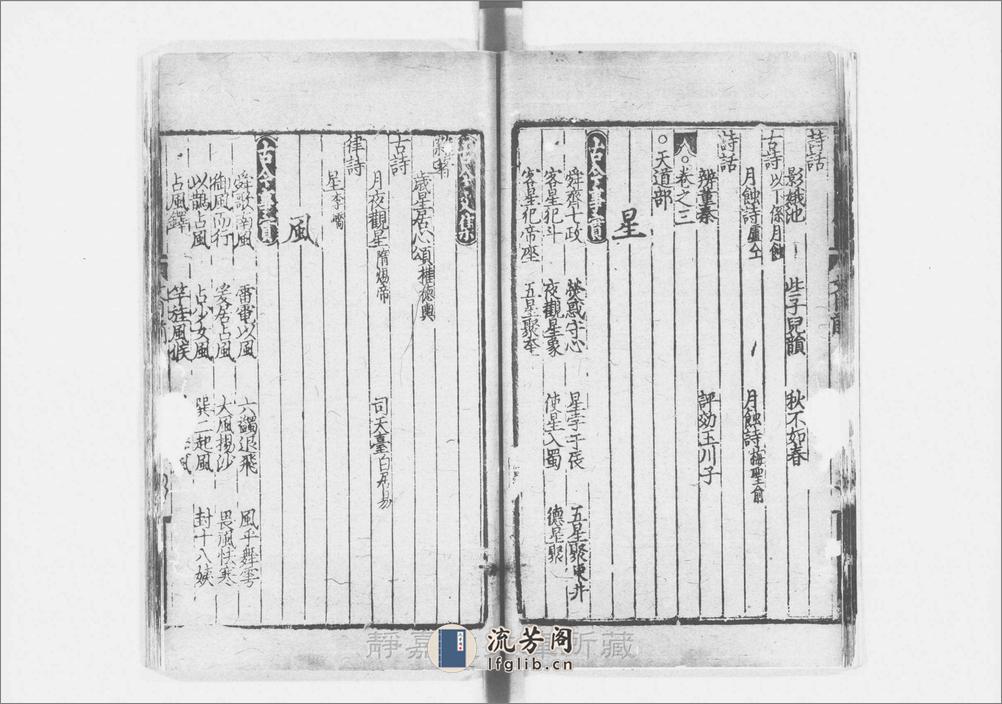 詩話
影娥池 些子兒韻 秋不如春
古詩以下係月蝕
月蝕詩盧仝 月蝕詩梅聖俞
詩話
辨董秦 評効玉川子
卷之三
天道部
星
古今事實
舜齊七政 熒惑守心 星孛于張 五星聚東井
客星犯斗 夜觀星象 使星入蜀 德星聚
客星犯帝座 五星聚奎
古今文集
雜著
歲星居心頌權德輿
古詩
月夜觀星隋煬帝 司天臺白居易
律詩
星李嶠
風
古今事實
舜歌南風 雷電以風 六鷁退飛 風乎舞雩
御風而行 爰居占風 大風揚沙 畏風怯寒
以鵲占風 占少女風 巽二起風 封十八姨
占風鐸 竿旌風候
流芳阁
lfglib.cn
靜嘉 所藏